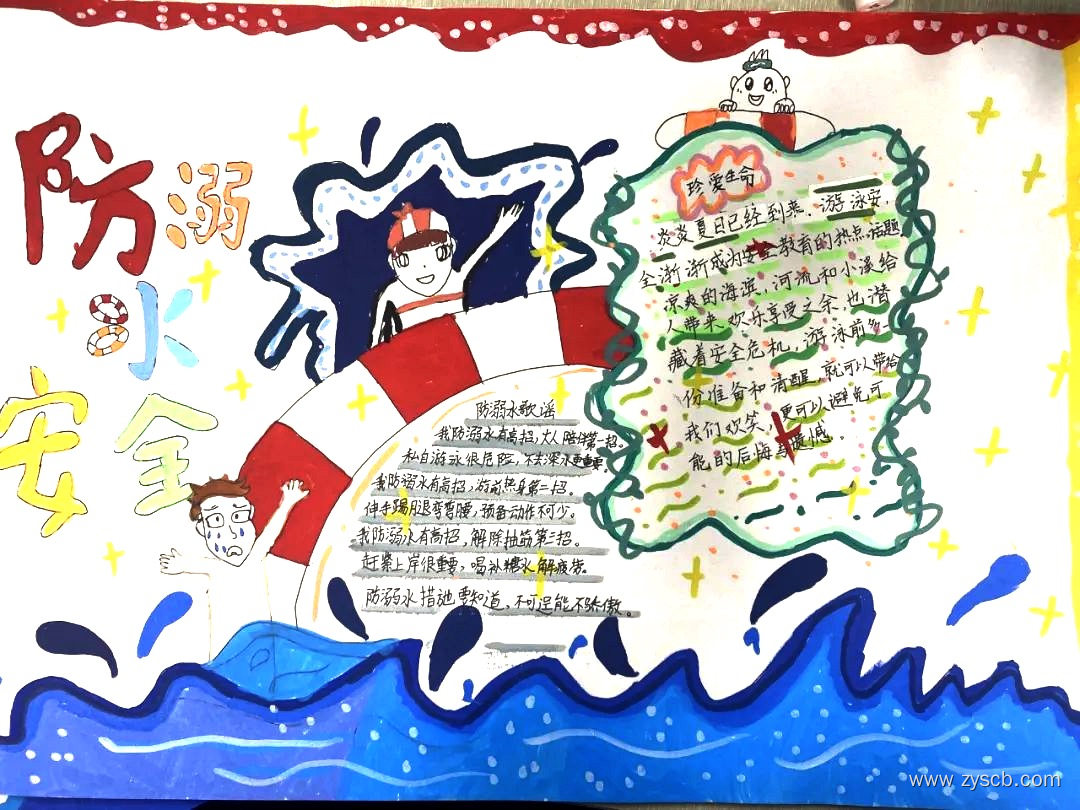 防溺
水
安全
珍爱生命
炎炎夏日已经到来.游泳安,
全渐渐成为安全教育的热点话题
凉爽的海滨,河流和小溪给
人带来欢乐享受之余,也潜
藏着安全危机,游泳前多一
份准备和清醒,就可以带给
我们欢笑,更可以避免可
能的后悔与遗憾.
防溺水歌谣
我防溺水有高招,大人陪伴第一招。
私自游泳很危险,不去深水更重要。
我防溺水有高招,游前热身第二招。
伸手踢腿弯弯腰,预备动作不可少。
我防溺水有高招,解除抽筋第三招。
赶紧上岸很重要,喝补糖水解疲劳。
防溺水措施要知道,不可逞能不骄傲。
www.zyscb.com